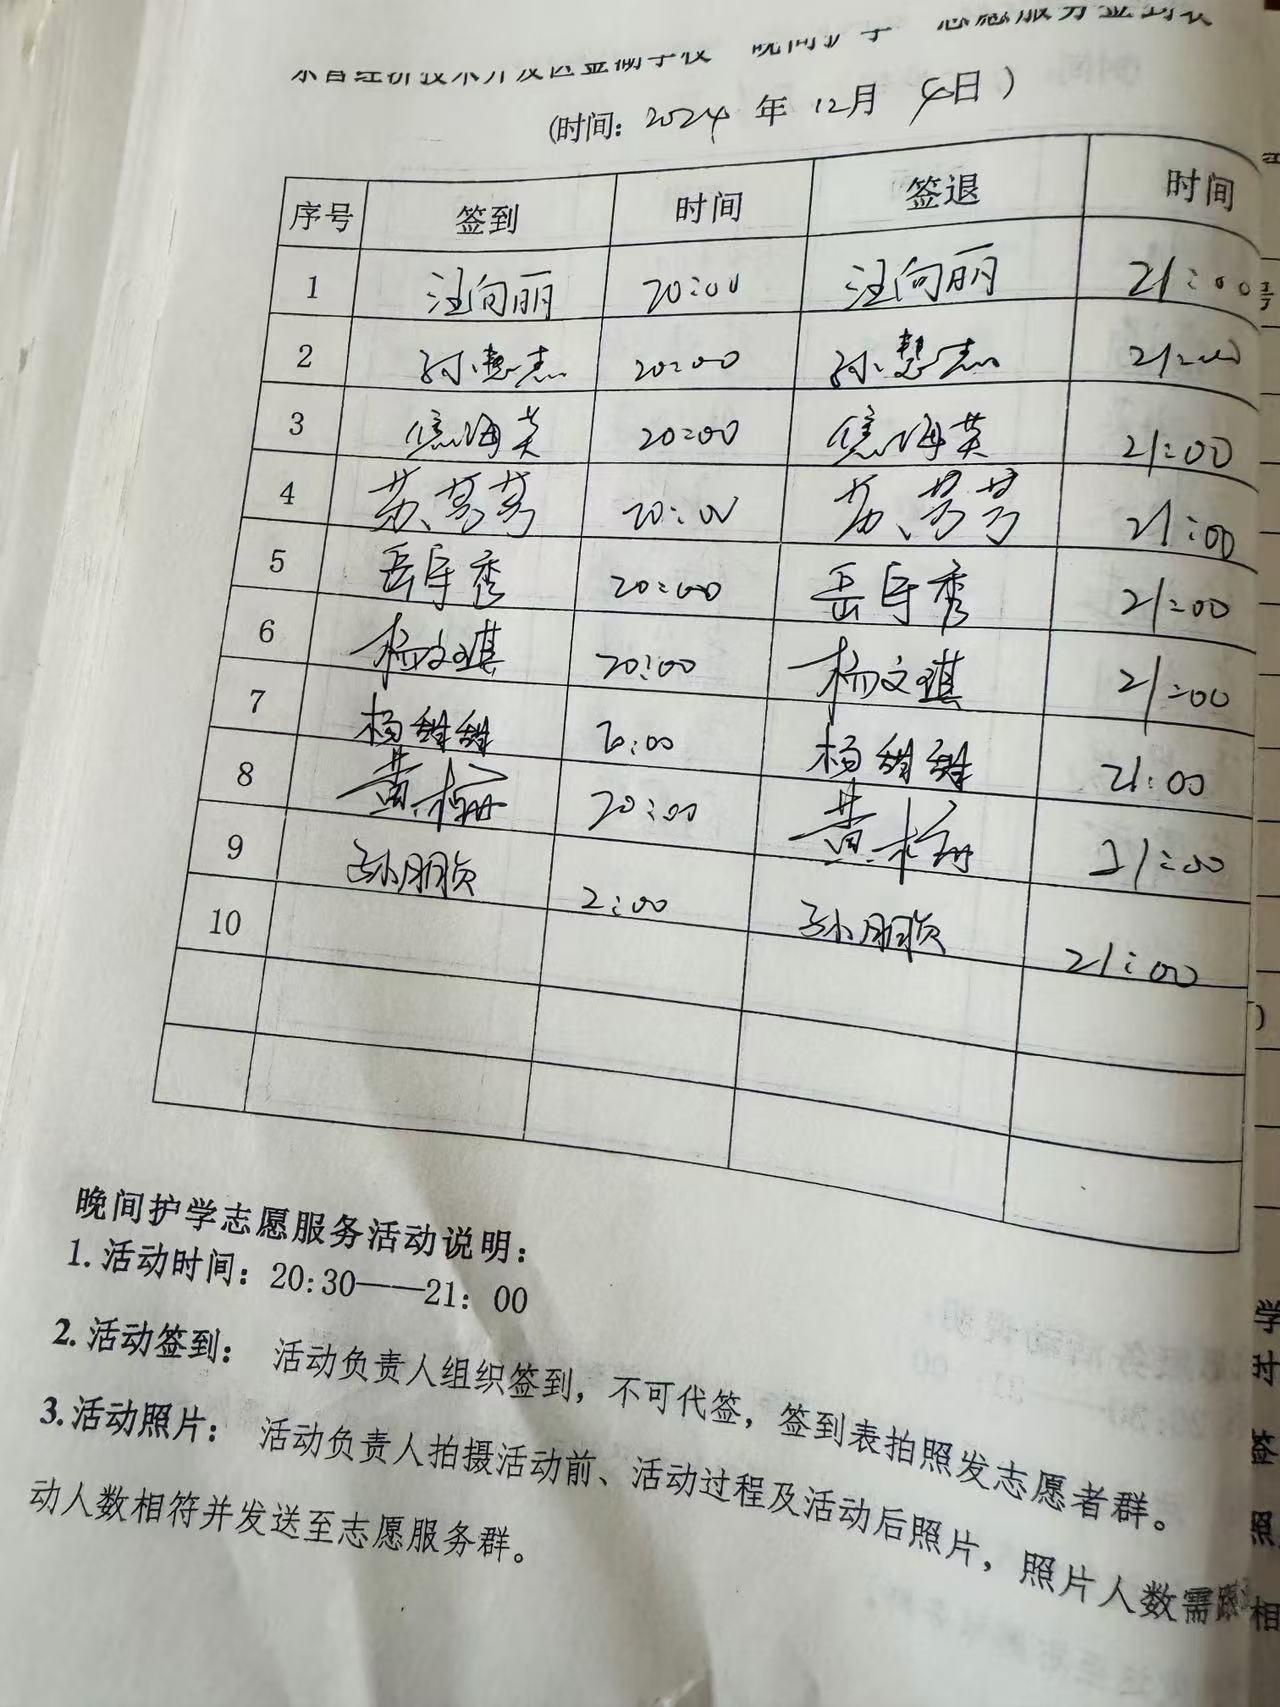 东营经济技术开发区金湖学校 晚间护学 志愿服务签到表
(时间：2024 年 12月 4日)
序号 签到 时间 签退 时间
1 汪向丽 20:00 汪向丽 21:00
2 孙慧杰 20:00 孙慧杰 21:00
3 焦海英 20:00 焦海英 21:00
4 苏芳芳 20:00 苏芳芳 21:00
5 岳守秀 20:00 岳守秀 21:00
6 杨文琪 20:00 杨文琪 21:00
7 杨甜甜 20:00 杨甜甜 21:00
8 黄栅 20:00 黄栅 21:00
9 孙朋贞 2:00 孙朋贞 21:00
10
晚间护学志愿服务活动说明：
1.活动时间：20:30——21：00
2.活动签到： 活动负责人组织签到，不可代签，签到表拍照发志愿者群。
3.活动照片： 活动负责人拍摄活动前、活动过程及活动后照片，照片人数需跟
动人数相符并发送至志愿服务群。